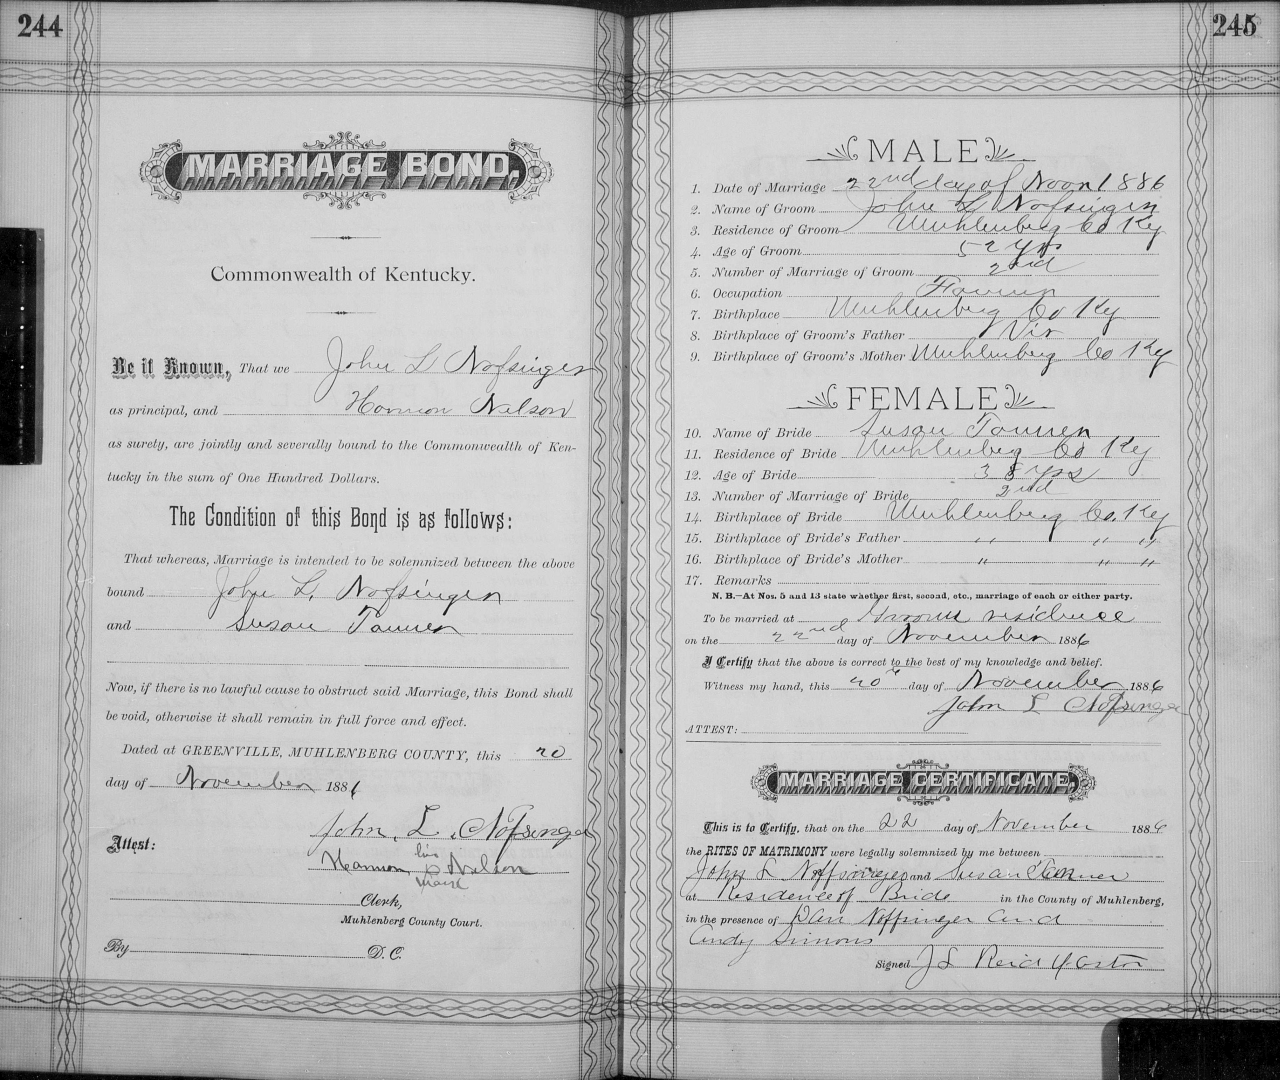 244
MARRIAGE BOND.
Commonwealth of Kentucky.
Be it Known, That we John L Nofsinger
as principal, and Harmon Nelson
as surety, are jointly and severally bound to the Commonwealth of Ken-
tucky in the sum of One Hundred Dollars.
The Condition of this Bond is as follows:
That whereas, Marriage is intended to be solemnized between the above
bound John L. Nofsinger
and Susan Tanner
Now, if there is no lawful cause to obstruct said Marriage, this Bond shall
be void, otherwise it shall remain in full force and effect.
Dated at GREENVILLE, MUHLENBERG COUNTY, this 20
day of November 1886
John. L. Nofsinger
Attest:
Harmon his Nelson
mark
Clerk,
Muhlenberg County Court.
By D. C.
245
MALE
1. Date of Marriage 22nd day of Novr 1886
2. Name of Groom John L Nofsinger
3. Residence of Groom Muhlenberg Co Ky
4. Age of Groom 52 yrs
5. Number of Marriage of Groom 2nd
6. Occupation Farmer
7. Birthplace Muhlenberg Co Ky
8. Birthplace of Groom's Father Vir
9. Birthplace of Groom's Mother Muhlenberg Co Ky
FEMALE
10. Name of Bride Susan Tanner
11. Residence of Bride Muhlenberg Co Ky
12. Age of Bride 38 yrs
13. Number of Marriage of Bride 2nd
14. Birthplace of Bride Muhlenberg Co. Ky
15. Birthplace of Bride's Father " " "
16. Birthplace of Bride's Mother " " "
17. Remarks
N. B.—At Nos. 5 and 13 state whether first, second, etc., marriage of each or either party.
To be married at Groom residence
on the 22nd day of November 1886
I Certify that the above is correct to the best of my knowledge and belief.
Witness my hand, this 20th day of November 1886
John L Nofsinger
ATTEST:
MARRIAGE CERTIFICATE.
This is to Certify, that on the 22 day of November 1886
the RITES OF MATRIMONY were legally solemnized by me between
John L Noffsinger and Susan Tanner
at Residence of Bride in the County of Muhlenberg,
in the presence of Dan Noffsinger and
Andy Simons
Signed J L Reid Pastor